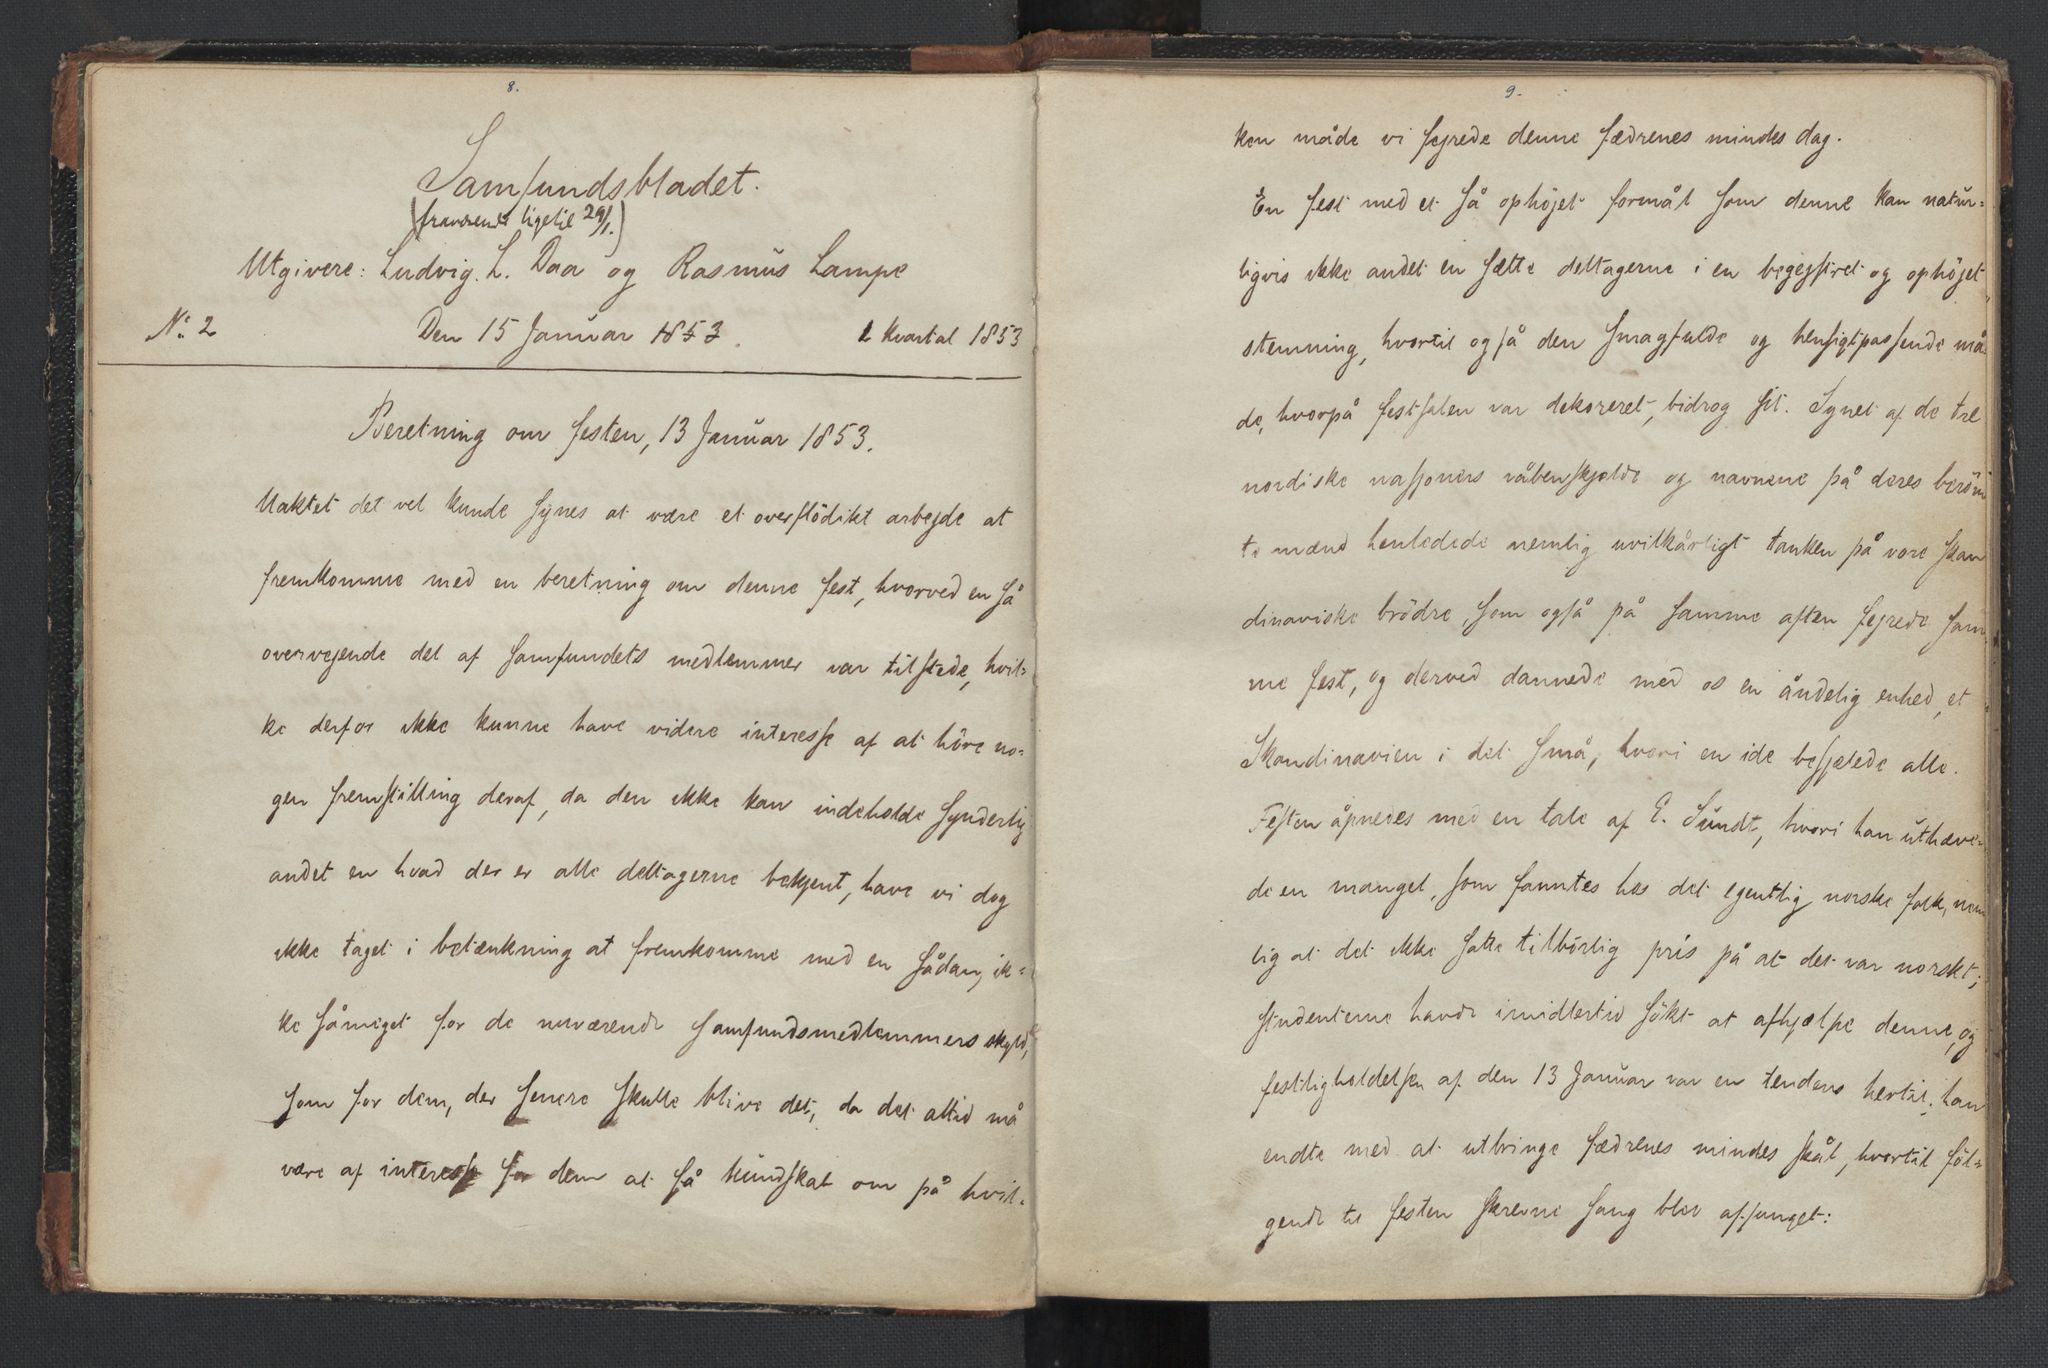 8.
Samfundsbladet.
(fraværende ligetil 29/1.)
Utgivere: Ludvig. L. Daa og Rasmus Lampe
No. 2 Den 15 Januar 1853. 1 kvartal 1853
Beretning om festen, 13 Januar 1853.
Uaktet det vel kunde synes at være et overflödikt arbejde at
fremkomme med en beretning om denne fest, hvorved en så
overvejende del af samfundets medlemmer var tilstede, hvil-
ke derfor ikke kunne have videre interesse af at höre no-
gen fremstilling deraf, da den ikke kan indeholde synderlig
andet en hvad der er alle deltagerne bekjent, have vi dog
ikke taget i betænkning at fremkomme med en sådan, ik-
ke såmeget for de nuværende samfundsmedlemmers skyld,
som for dem, der senere skulle blive det, da det altid må
være af interesse for dem at få kundskab om på hvil-
9.
ken måde vi fejrede denne fædrenes mindes dag.
En fest med et så ophöjet formål som denne kan natur-
ligvis ikke andet en sætte deltagerne i en begejstret og ophöjet
stemning, hvortil også den smagfulde og hensigtpassende må-
de, hvorpå festsalen var dekoreret, bidrog sit. Synet af de tre
nordiske nasjoners våbenskjolde og navnene på deres beröm
te mænd henledede nemlig uvilkårligt tanken på vore skan
dinaviske brödre, som også på samme aften fejrede sam-
me fest, og derved dannede med os en åndelig enhed, et
Skandinavien i det små, hvori en ide besjælede alle.
Festen åpnedes med en tale af E. Sundt, hvori han uthæve-
de en mangel, som fanntes hos det egentlig norske folk, nem
lig at det ikke satte tilbörlig pris på at det var norskt;
studenterne havde imidlertid sökt at afhjælpe denne, og
festligholdelsen af den 13 Januar var en tendens hertil; han
endte med at utbringe fædrenes mindes skål, hvortil föl-
gende til festen skrevne sang blev afsunget: